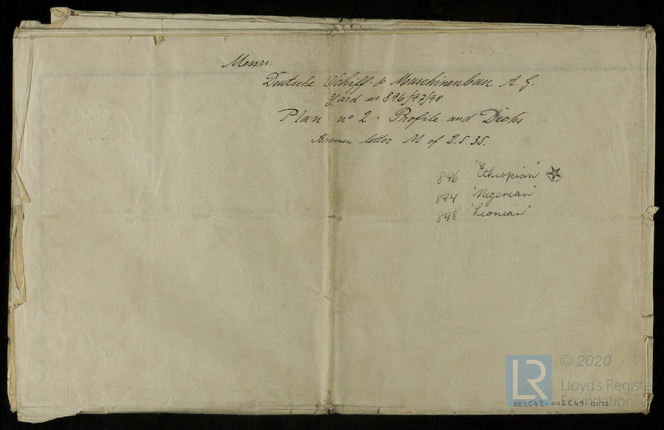 Messrs:
Deutsche Schiff- & Maschinenbau A.G.
Yard no 896/97/98
Plan no 2 - Profile and Decks
Bremen letter M of 2.5.35.
896 "Ethiopian"
897 "Nigerian"
898 "Leonian"
LR © 2020
Lloyd's Register
Foundation